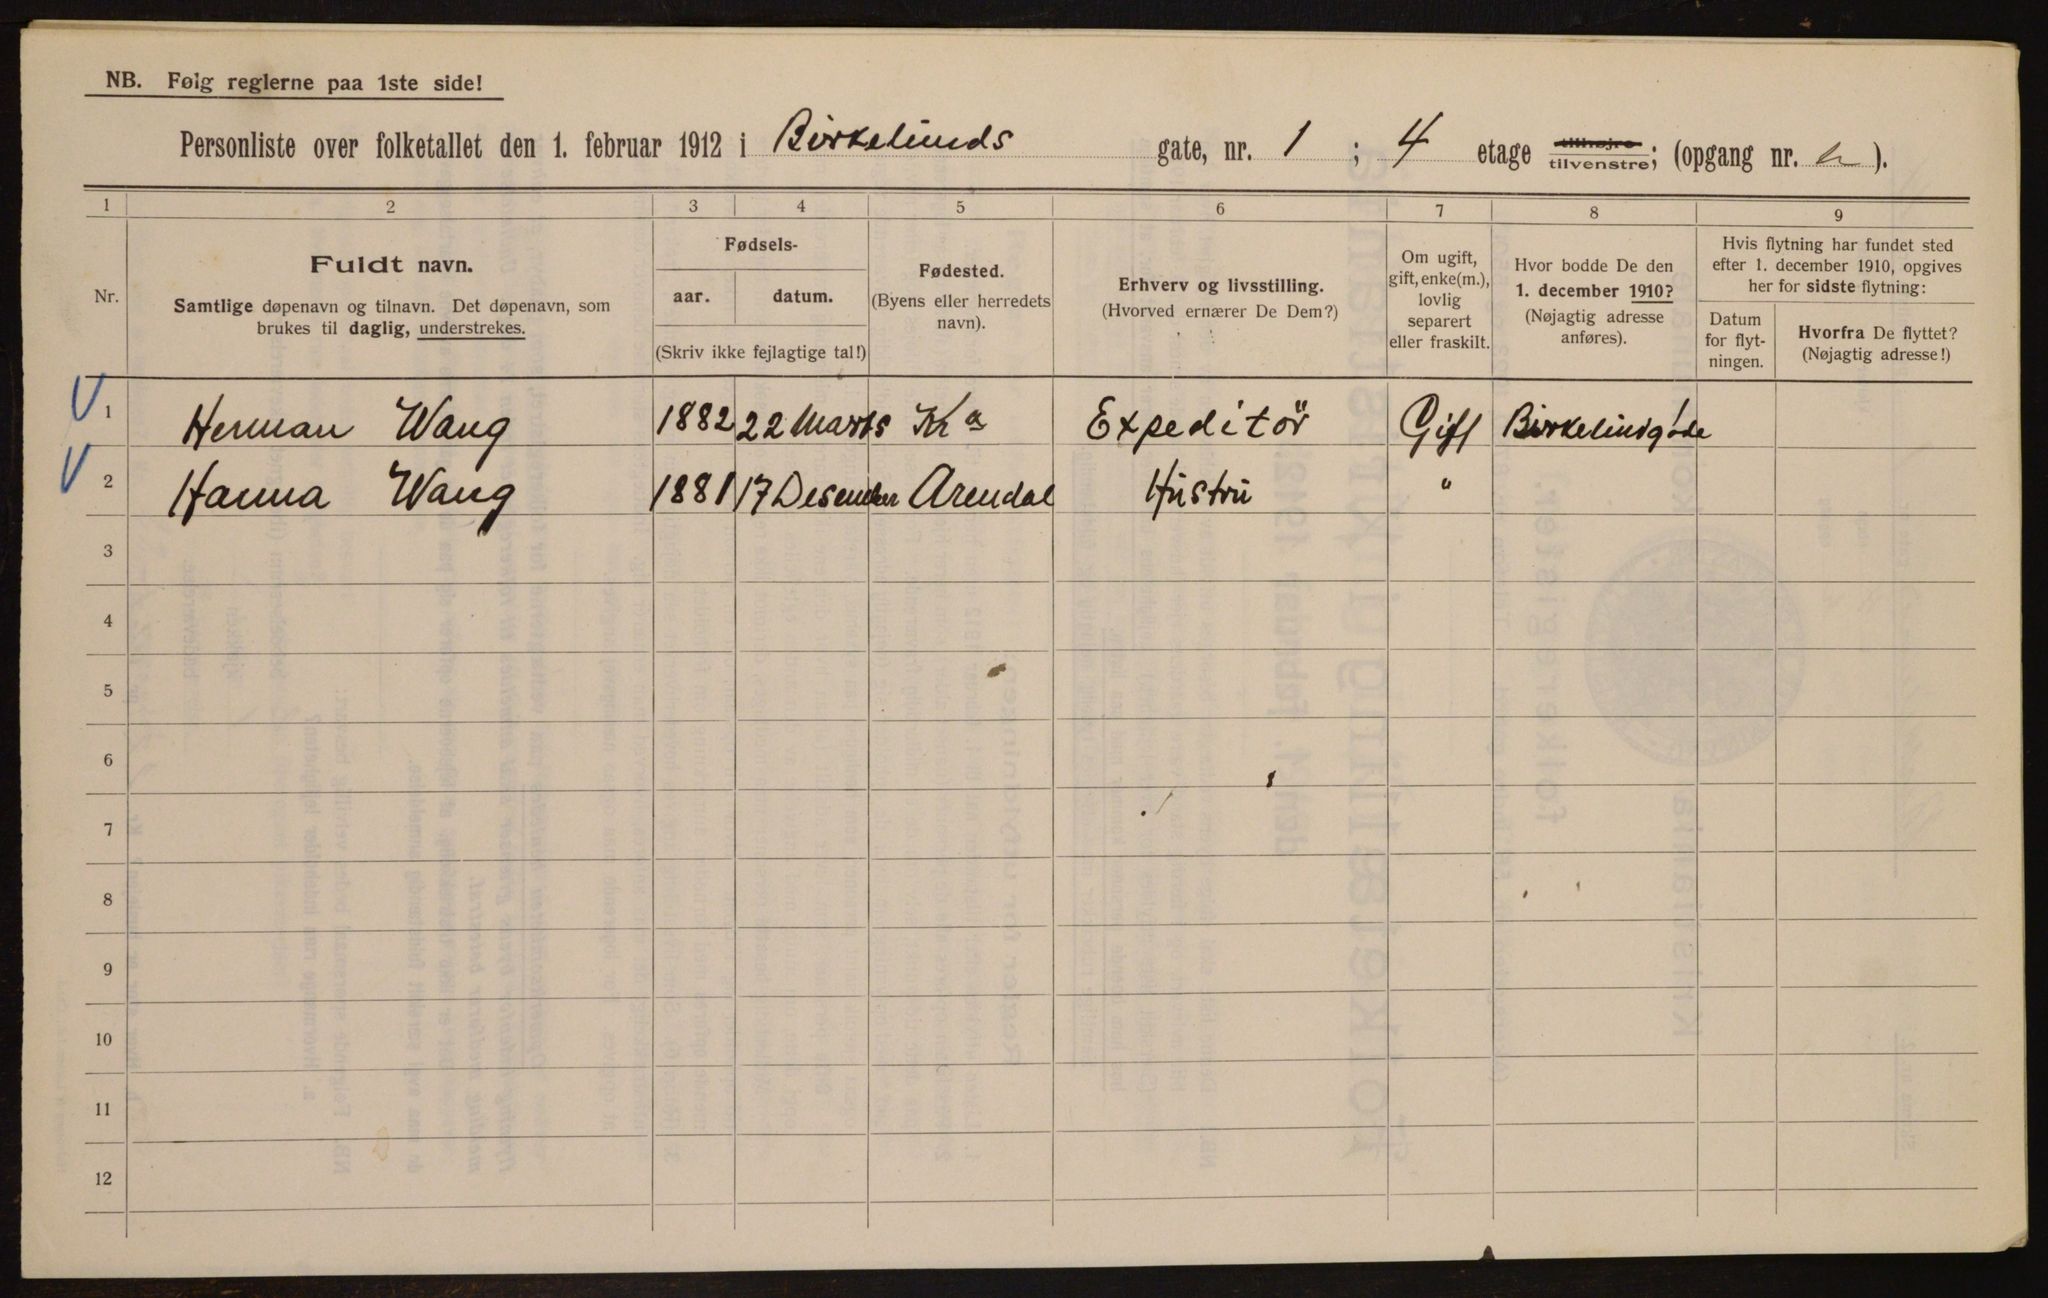 NB. Følg reglerne paa 1ste side!
Personliste over folketallet den 1. februar 1912 i Birkelunds gate, nr. 1 ; 4 etage tilhøjre tilvenstre; (opgang nr. ).
1 2 3 4 5 6 7 8 9
Nr.
Fuldt navn.
Samtlige døpenavn og tilnavn. Det døpenavn, som
brukes til daglig, understrekes.
Fødsels-
aar. datum.
(Skriv ikke fejlagtige tal!)
Fødested.
(Byens eller herredets
navn).
Erhverv og livsstilling.
(Hvorved ernærer De Dem?)
Om ugift,
gift, enke(m.),
lovlig
separert
eller fraskilt.
Hvor bodde De den
1. december 1910?
(Nøjagtig adresse
anføres).
Hvis flytning har fundet sted
efter 1. december 1910, opgives
her for sidste flytning:
Datum
for flyt-
ningen.
Hvorfra De flyttet?
(Nøjagtig adresse!)
1 Herman Wang 1882 22 Marts Ka Expeditør Gift
2 Hanna Wang 1881 17 Desember Arendal Hustru "
3
4
5
6
7
8
9
10
11
12